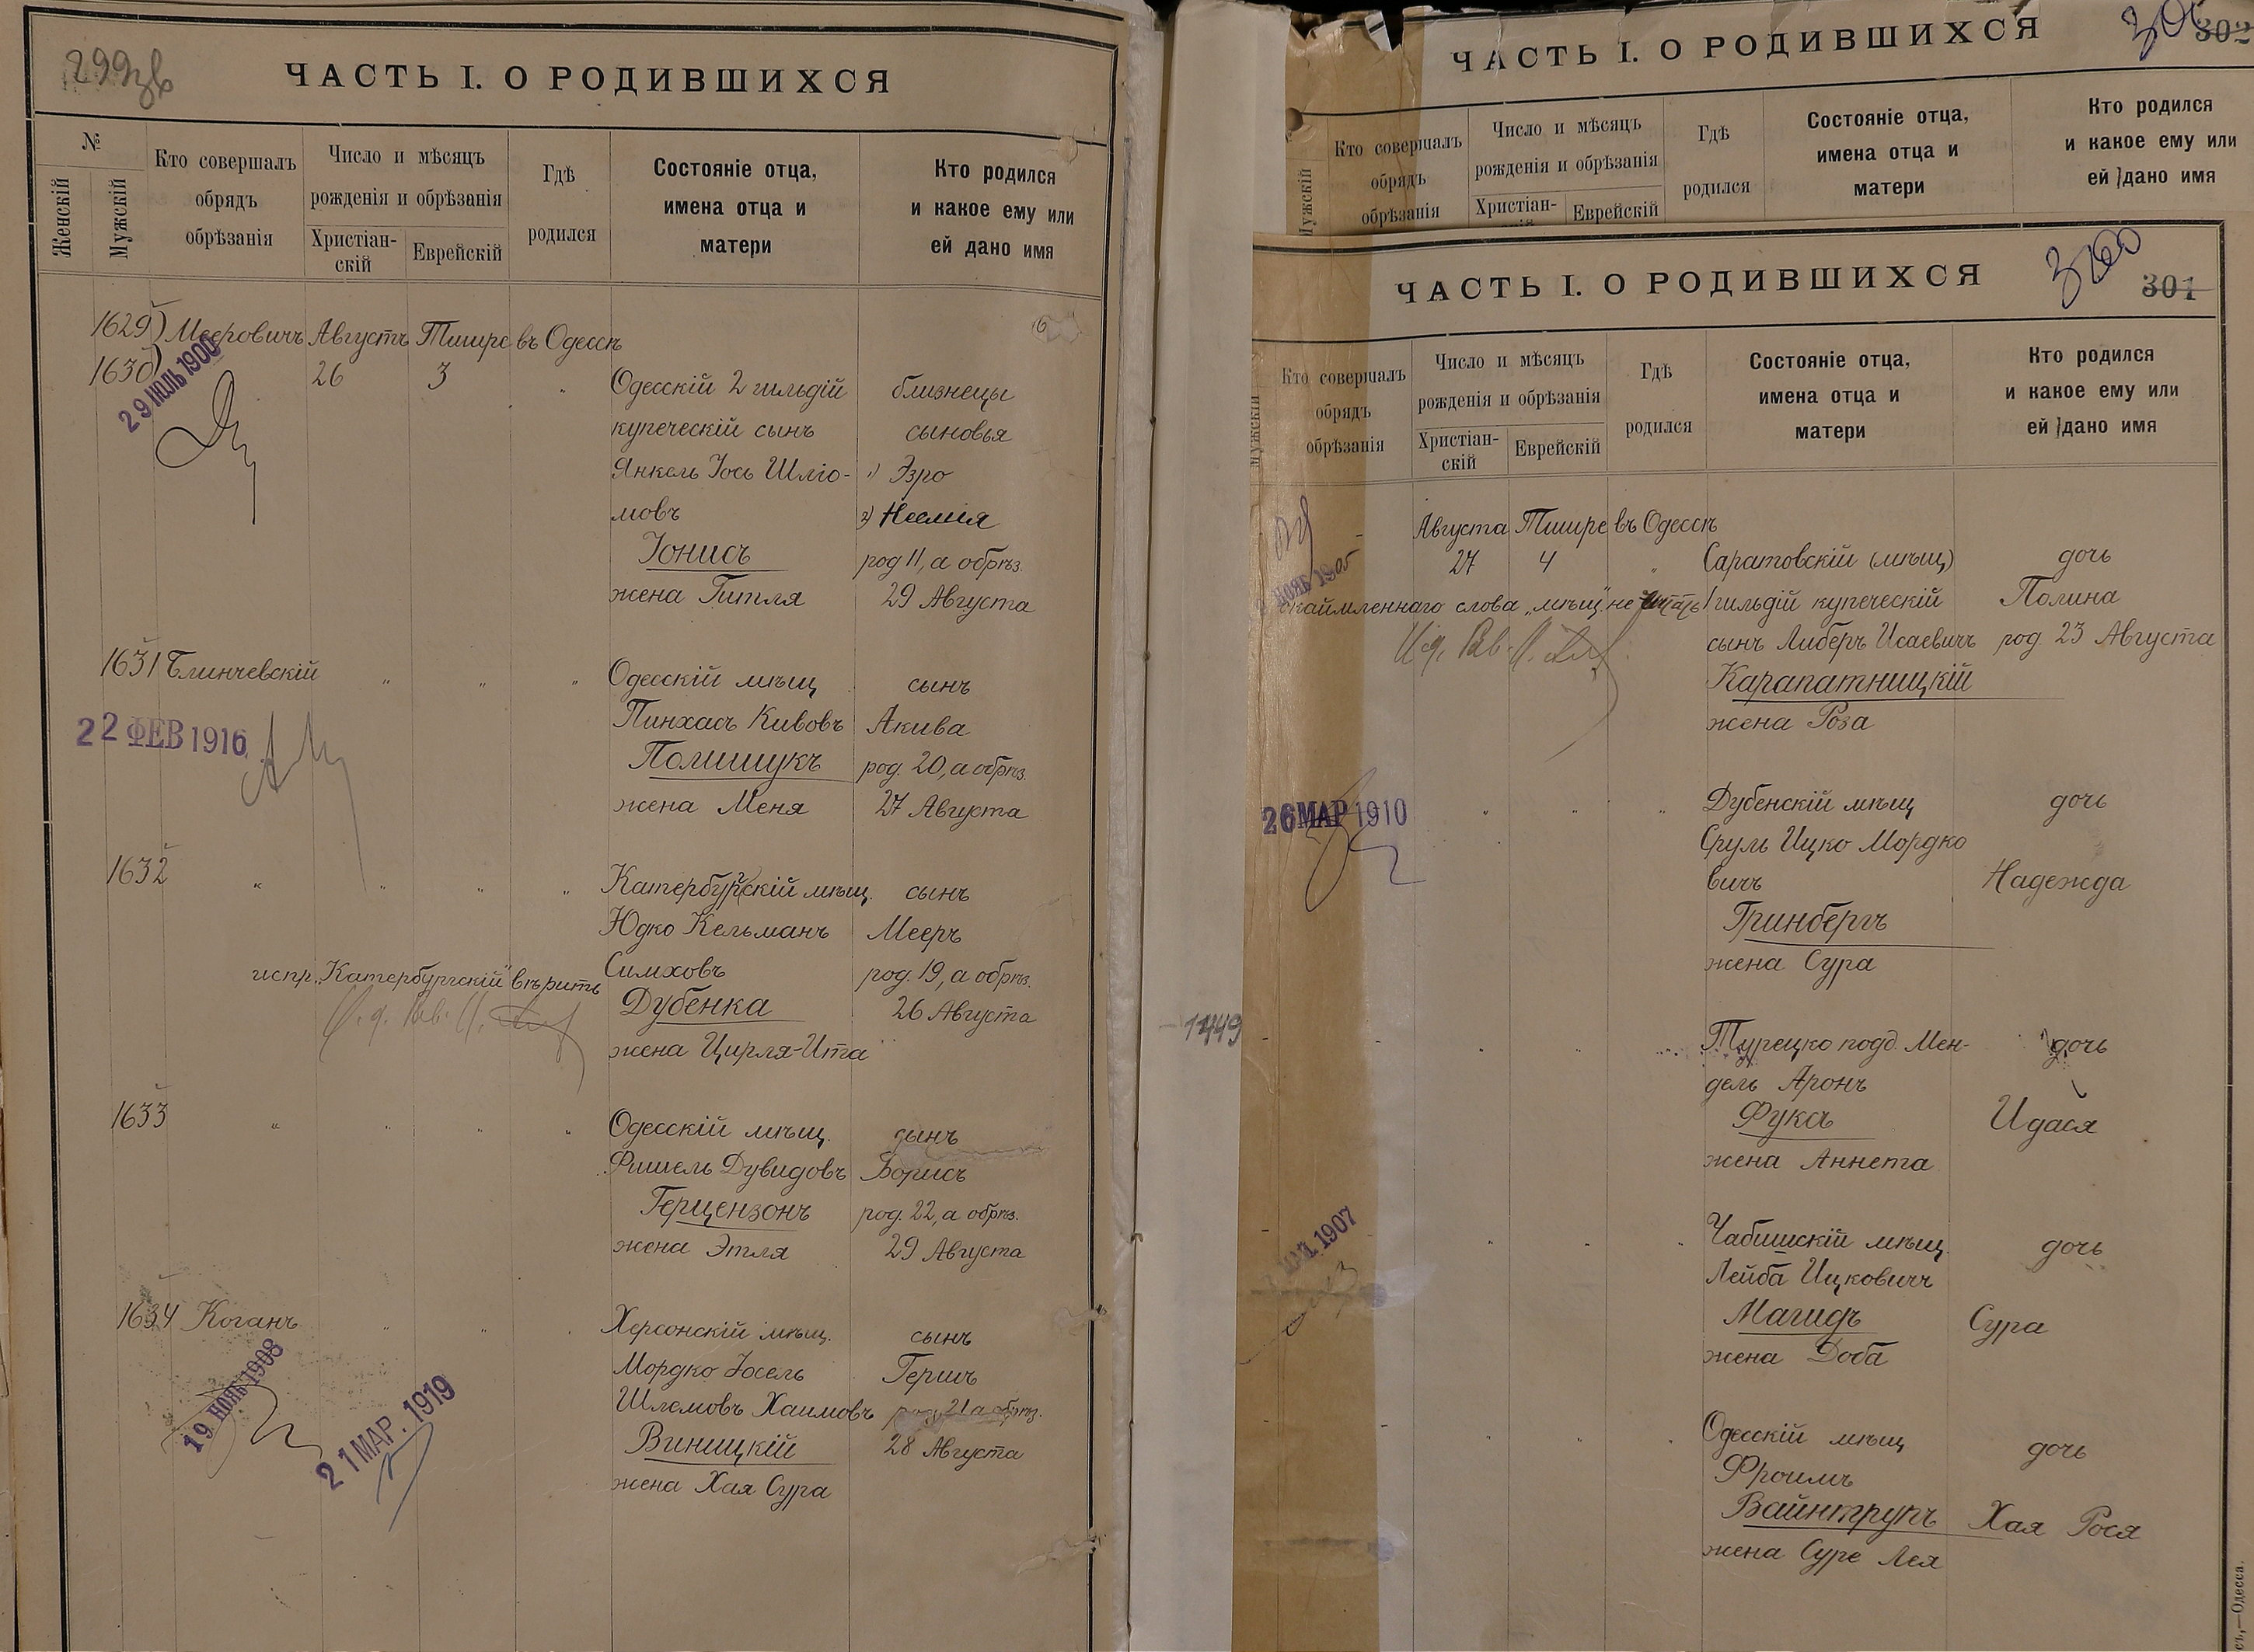 299 об
ЧАСТЬ I. О РОДИВШИХСЯ
№
Женскій
Мужскій
Кто совершалъ
обрядъ
обрѣзанія
Число и мѣсяцъ
рожденія и обрѣзанія
Христіан-
скій
Еврейскій
Гдѣ
родился
Состояніе отца,
имена отца и
матери
Кто родился
и какое ему или
ей дано имя
1629) Мееровичъ Августъ Тишре въ Одессѣ
1630) 26 3 „ Одесскій 2 гильдій близнецы
29 ІЮЛЬ 1900
купеческій сынъ сыновья
Янкель Іось Шліо- 1) Эзро
мовъ 2) Неемія
Іонисъ род 11, а обрѣз.
жена Гитля 29 Августа
1631 Блинчевскій „ „ „ Одесскій мѣщ сынъ
22 ФЕВ 1916
Пинхасъ Кивовъ Акива
Полищукъ род. 20, а обрѣз.
жена Меня 27 Августа
1632 „ „ „ „ Катербургскій мѣщ. сынъ
Юдко Кельманъ Мееръ
испр. „Катербургскій" вѣрить
Симховъ род. 19, а обрѣз.
Дубенка 26 Августа
жена Цирля-Ита
1633 „ „ „ „ Одесскій мѣщ. сынъ
Фишель Дувидовъ Борисъ
Герцензонъ род. 22, а обрѣз.
жена Этля 29 Августа
1634 Коганъ „ „ „ Херсонскій мѣщ. сынъ
19 НОЯБ 1908
21 МАР. 1919
Мордко Іосель Гершъ
Шлемовъ Хаимовъ род. 21 а обрѣз.
Виницкій 28 Августа
жена Хая Сура
ЧАСТЬ I. О РОДИВШИХСЯ
302
Мужскій
Кто совершалъ
обрядъ
обрѣзанія
Число и мѣсяцъ
рожденія и обрѣзанія
Христіан-
скій
Еврейскій
Гдѣ
родился
Состояніе отца,
имена отца и
матери
Кто родился
и какое ему или
ей дано имя
ЧАСТЬ I. О РОДИВШИХСЯ
300
301
Мужскій
Кто совершалъ
обрядъ
обрѣзанія
Число и мѣсяцъ
рожденія и обрѣзанія
Христіан-
скій
Еврейскій
Гдѣ
родился
Состояніе отца,
имена отца и
матери
Кто родился
и какое ему или
ей дано имя
Августа Тишре въ Одессѣ
27 4 „ Саратовскій (мѣщ) дочь
НОЯБ 1905
окаймленнаго слова „мѣщ" не читать
1 гильдій купеческій Полина
сынъ Либеръ Исаевичъ род. 23 Августа
Карапатницкій
жена Роза
26 МАР 1910
„ „ „ Дубенскій мѣщ дочь
Сруль Ицко Мордко
вичъ Надежда
Гринбергъ
жена Сура
1449
„ „ „ Турецко подд. Мен- дочь
дель Аронъ
Фуксъ Идася
жена Аннета
1907
„ „ „ Чабишскій мѣщ. дочь
Лейба Ицковичъ
Магидъ Сура
жена Доба
„ „ Одесскій мѣщ дочь
Фроимъ
Вайнтрупъ Хая Рося
жена Суре Лея
Одесса.